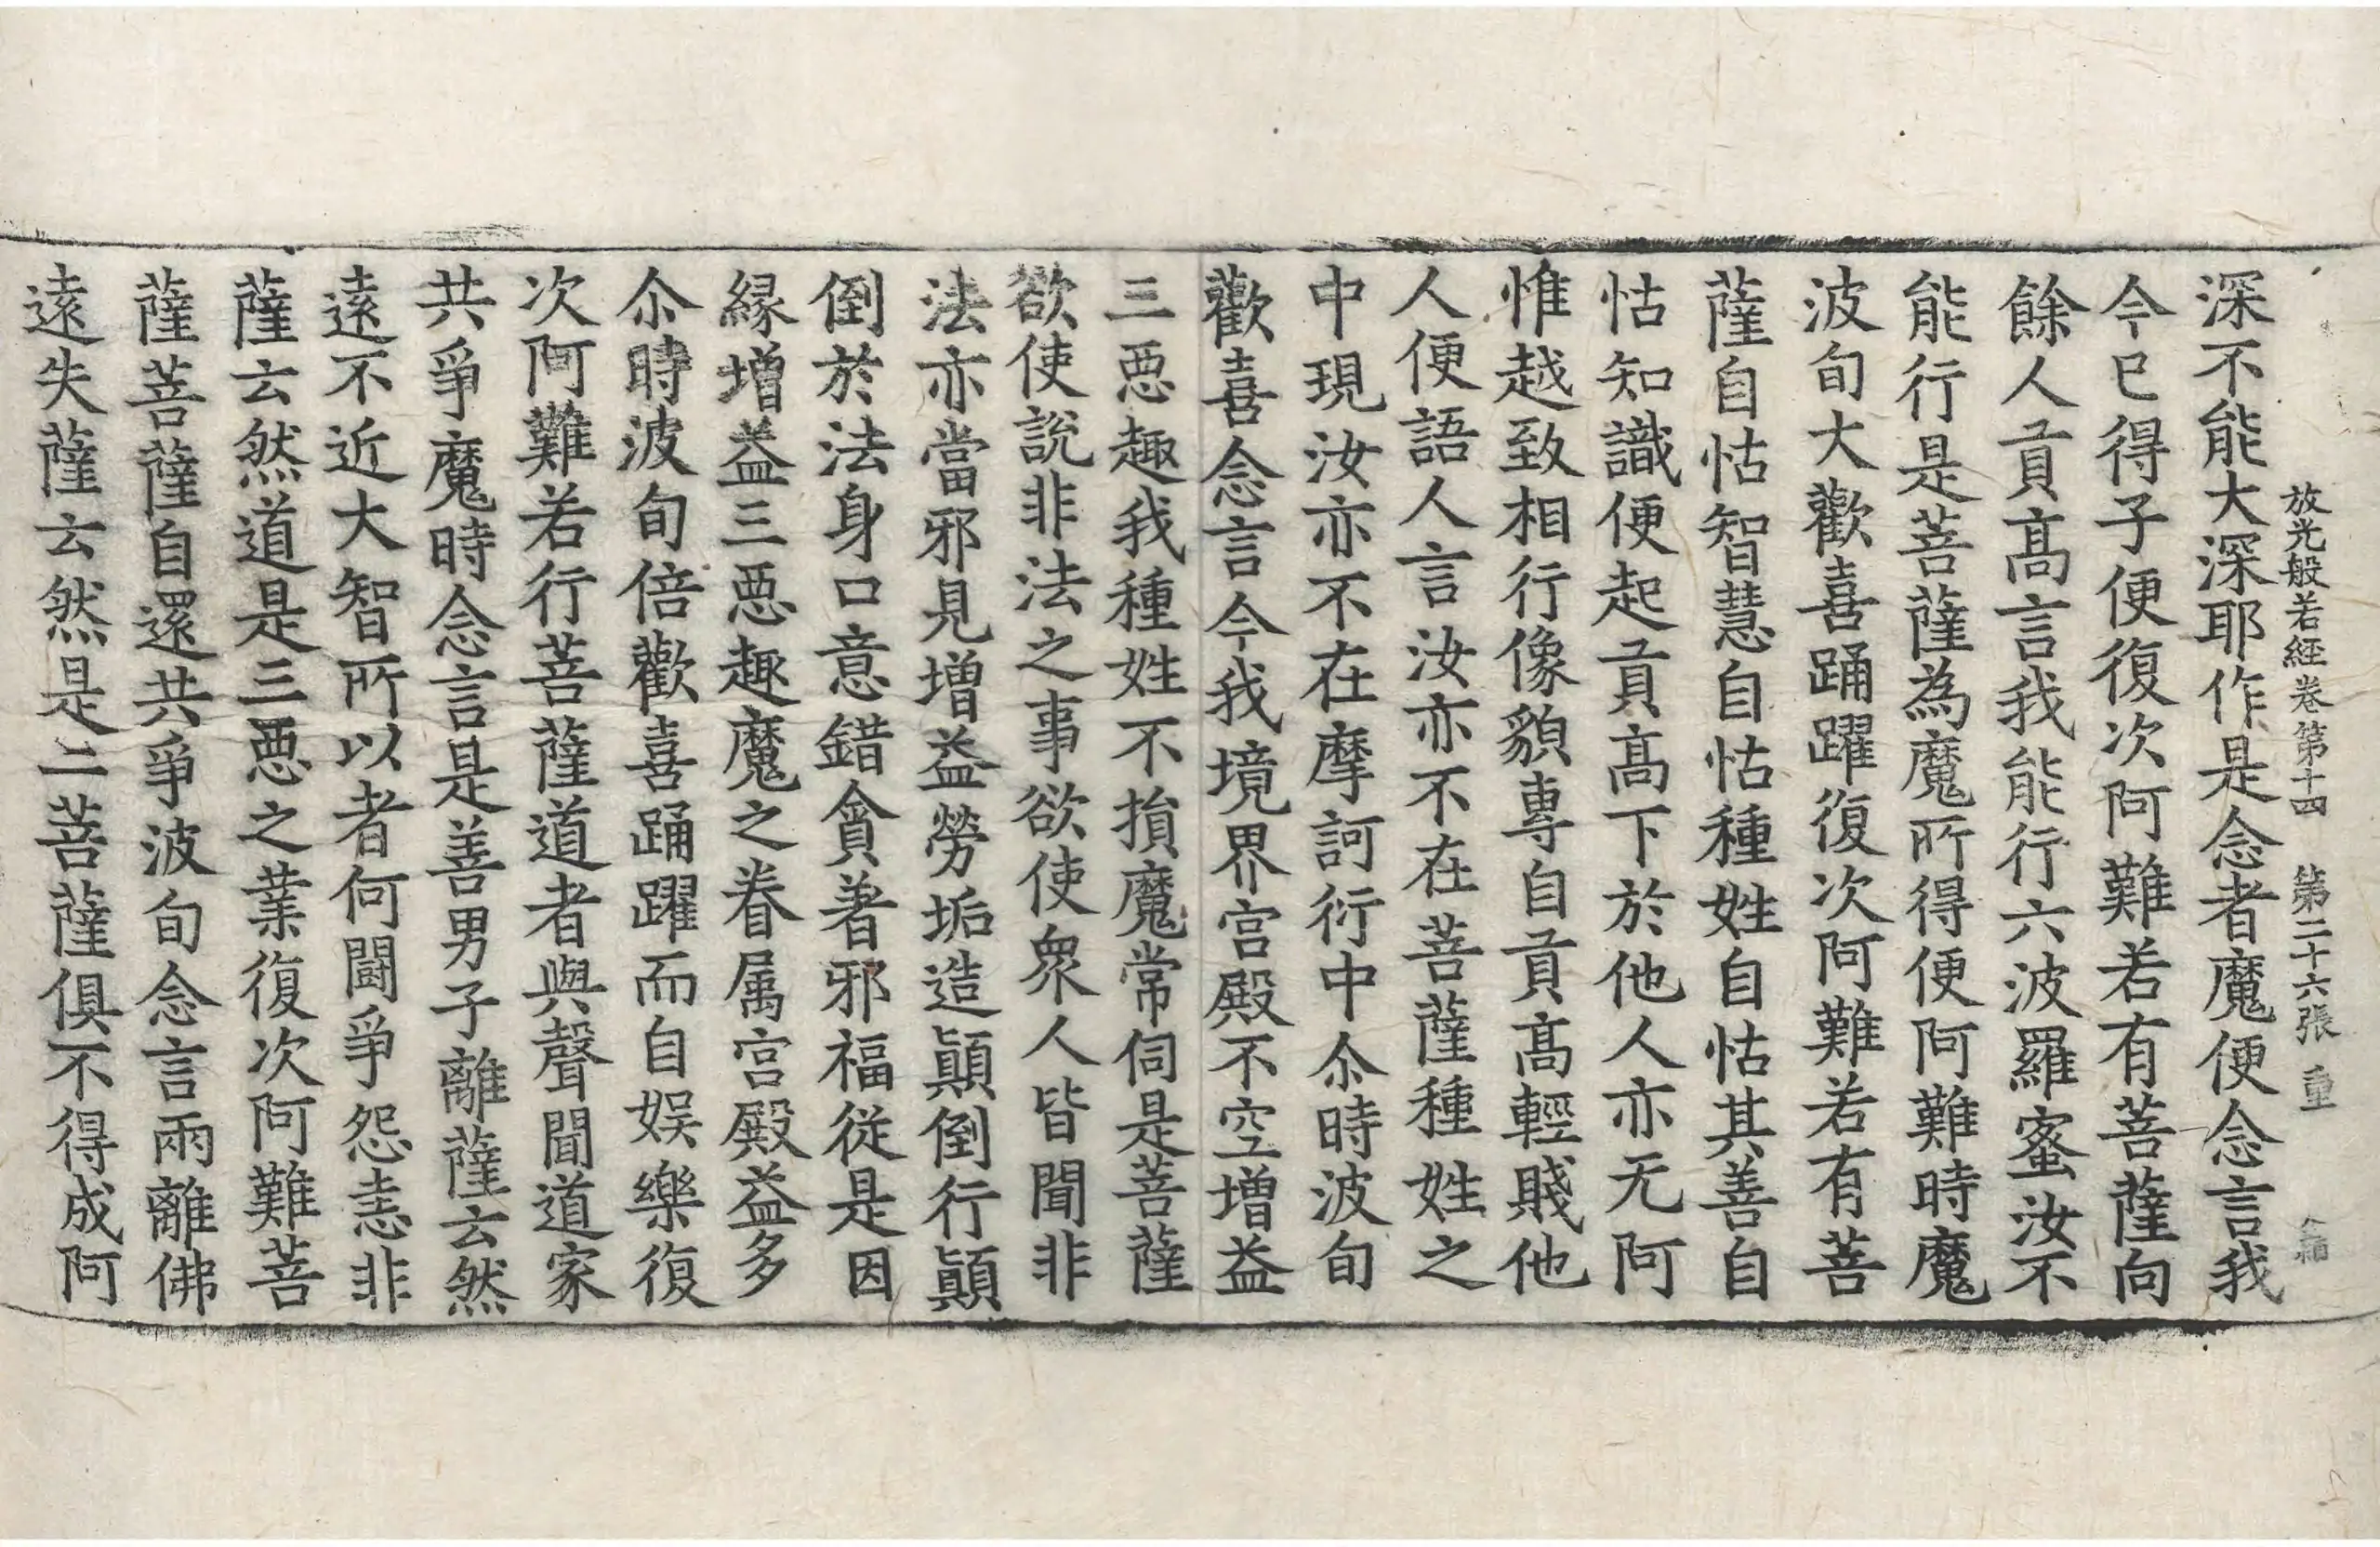 放光般若經卷第十四　第二十六張　重
深不能大深耶作是念者魔便念言我
今已得子便復次阿難若有菩薩向
餘人貢高言我能行六波羅蜜汝不
能行是菩薩為魔所得便阿難時魔
波旬大歡喜踊躍復次阿難若有菩
薩自怙智慧自怙種姓自怙其善自
怙知識便起貢高下於他人亦无阿
惟越致相行像貌專自貢高輕賤他
人便語人言汝亦不在菩薩種姓之
中現汝亦不在摩訶衍中尒時波旬
歡喜念言今我境界宮殿不空增益
三惡趣我種姓不損魔常伺是菩薩
欲使說非法之事欲使衆人皆聞非
法亦當邪見增益勞垢造顚倒行顚
倒於法身口意錯貪著邪福從是因
緣增益三惡趣魔之眷属宮殿益多
尒時波旬倍歡喜踊躍而自娱樂復
次阿難若行菩薩道者與聲聞道家
共爭魔時念言是善男子離薩云然
遠不近大智所以者何鬪爭怨恚非
薩云然道是三惡之業復次阿難菩
薩菩薩自還共爭波旬念言兩離佛
遠失薩云然是二菩薩俱不得成阿